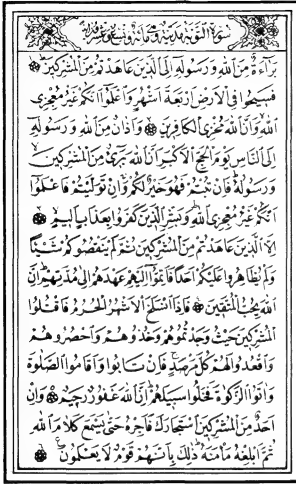 سورة التوبة مدنية وهي مائة وتسع وعشرون آية
بَرَآءَةٌ مِنَ اللهِ وَرَسُولِهِ إِلَى الَّذِينَ عَاهَدْتُمْ مِنَ الْمُشْرِكِينَ
فَسِيحُوا فِي الْأَرْضِ أَرْبَعَةَ أَشْهُرٍ وَاعْلَمُوا أَنَّكُمْ غَيْرُ مُعْجِزِي
اللهِ وَأَنَّ اللهَ مُخْزِي الْكَافِرِينَ وَأَذَانٌ مِنَ اللهِ وَرَسُولِهِ
إِلَى النَّاسِ يَوْمَ الْحَجِّ الْأَكْبَرِ أَنَّ اللهَ بَرِيءٌ مِنَ الْمُشْرِكِينَ
وَرَسُولُهُ فَإِنْ تُبْتُمْ فَهُوَ خَيْرٌ لَكُمْ وَإِنْ تَوَلَّيْتُمْ فَاعْلَمُوا
أَنَّكُمْ غَيْرُ مُعْجِزِي اللهِ وَبَشِّرِ الَّذِينَ كَفَرُوا بِعَذَابٍ أَلِيمٍ
إِلَّا الَّذِينَ عَاهَدْتُمْ مِنَ الْمُشْرِكِينَ ثُمَّ لَمْ يَنْقُصُوكُمْ شَيْئًا
وَلَمْ يُظَاهِرُوا عَلَيْكُمْ أَحَدًا فَأَتِمُّوا إِلَيْهِمْ عَهْدَهُمْ إِلَى مُدَّتِهِمْ إِنَّ
اللهَ يُحِبُّ الْمُتَّقِينَ فَإِذَا انْسَلَخَ الْأَشْهُرُ الْحُرُمُ فَاقْتُلُوا
الْمُشْرِكِينَ حَيْثُ وَجَدْتُمُوهُمْ وَخُذُوهُمْ وَاحْصُرُوهُمْ
وَاقْعُدُوا لَهُمْ كُلَّ مَرْصَدٍ فَإِنْ تَابُوا وَأَقَامُوا الصَّلٰوةَ
وَآتَوُا الزَّكٰوةَ فَخَلُّوا سَبِيلَهُمْ إِنَّ اللهَ غَفُورٌ رَحِيمٌ وَإِنْ
أَحَدٌ مِنَ الْمُشْرِكِينَ اسْتَجَارَكَ فَأَجِرْهُ حَتَّى يَسْمَعَ كَلَامَ اللهِ
ثُمَّ أَبْلِغْهُ مَأْمَنَهُ ذَٰلِكَ بِأَنَّهُمْ قَوْمٌ لَا يَعْلَمُونَ